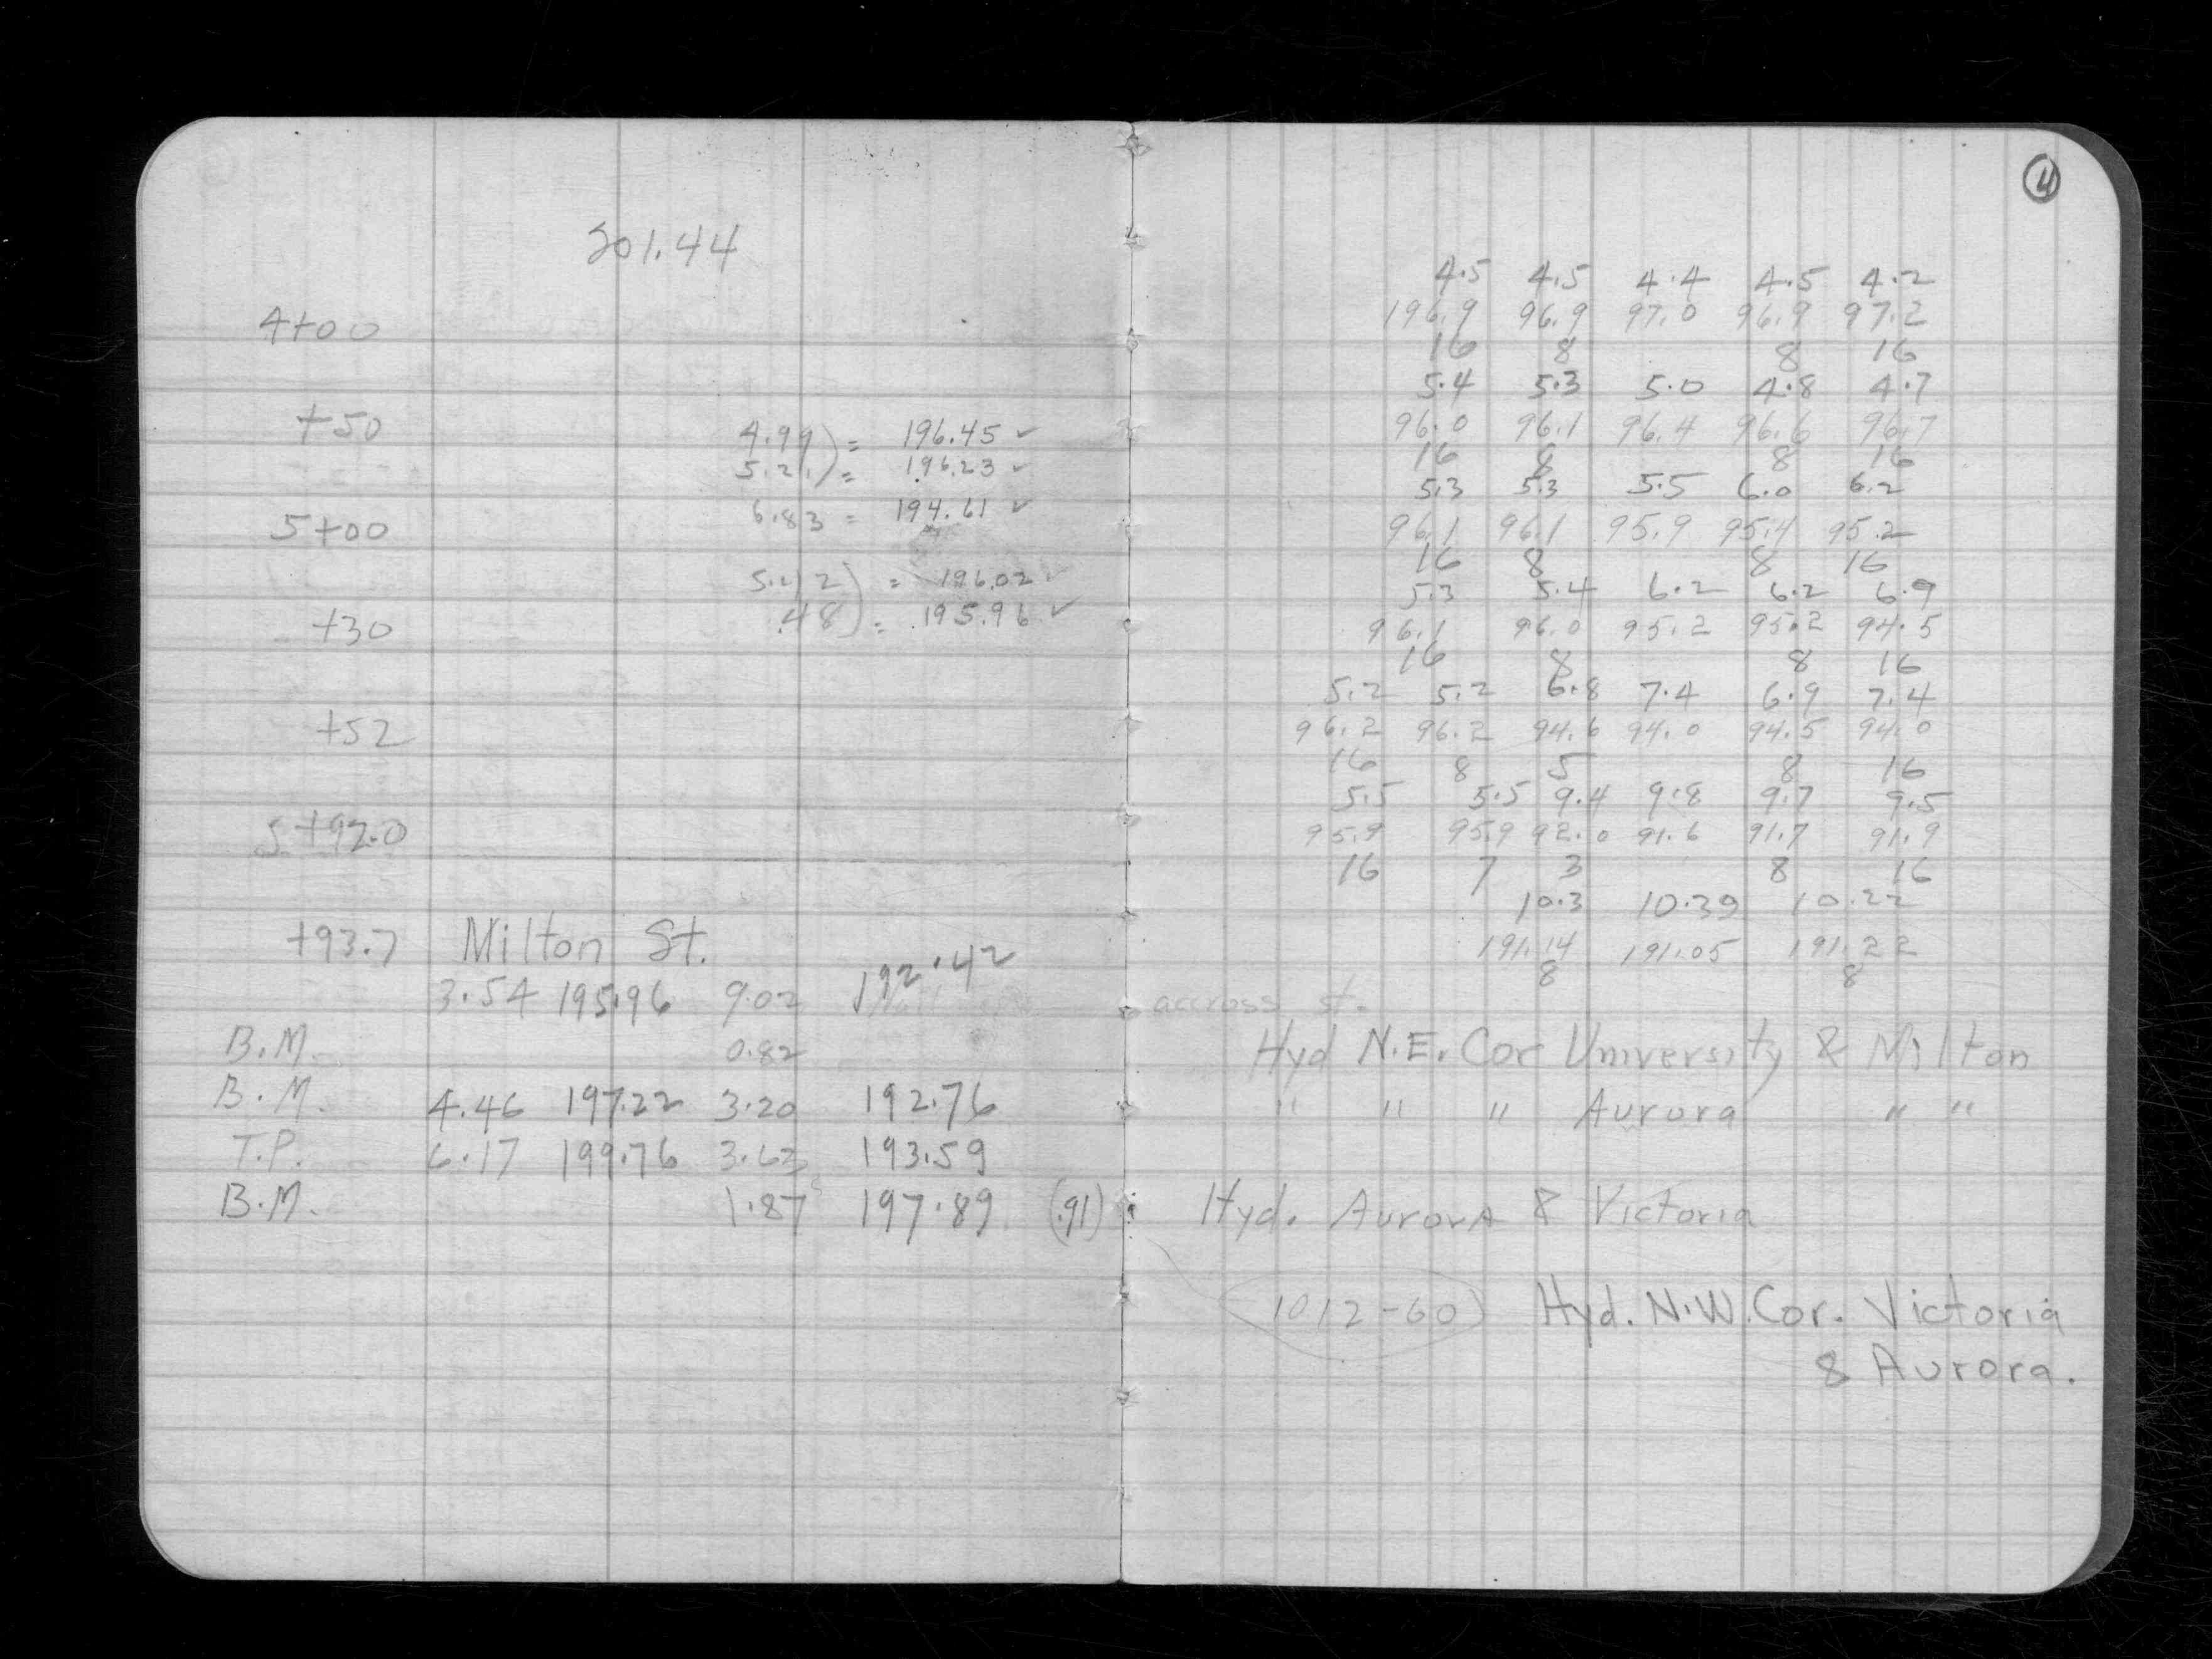 201.44
4+00
+50 4.99) = 196.45 ✓
5.21) = 196.23 ✓
6.83 = 194.61 ✓
5+00
5.42) = 196.02 ✓
+30 .48) = 195.96 ✓
+52
5+92.0
+93.7 Milton St.
3.54 195.96 9.02 192.42
B.M. 0.82
B.M. 4.46 197.22 3.20 192.76
T.P. 6.17 199.76 3.63 193.59
B.M. 1.87 197.89 (.91)
4
4.5 4.5 4.4 4.5 4.2
196.9 96.9 97.0 96.9 97.2
16 8 8 16
5.4 5.3 5.0 4.8 4.7
96.0 96.1 96.4 96.6 96.7
16 8 8 16
5.3 5.3 5.5 6.0 6.2
96.1 96.1 95.9 95.4 95.2
16 8 8 16
5.3 5.4 6.2 6.2 6.9
96.1 96.0 95.2 95.2 94.5
16 8 8 16
5.2 5.2 6.8 7.4 6.9 7.4
96.2 96.2 94.6 94.0 94.5 94.0
16 8 5 8 16
5.5 5.5 9.4 9.8 9.7 9.5
95.9 95.9 92.0 91.6 91.7 91.9
16 7 3 8 16
10.3 10.39 10.22
191.14 191.05 191.22
8 8
accross st.
Hyd N.E. Cor University & Milton
" " " Aurora " "
Hyd. Aurora & Victoria
1012-60 Hyd. N.W. Cor. Victoria
& Aurora.